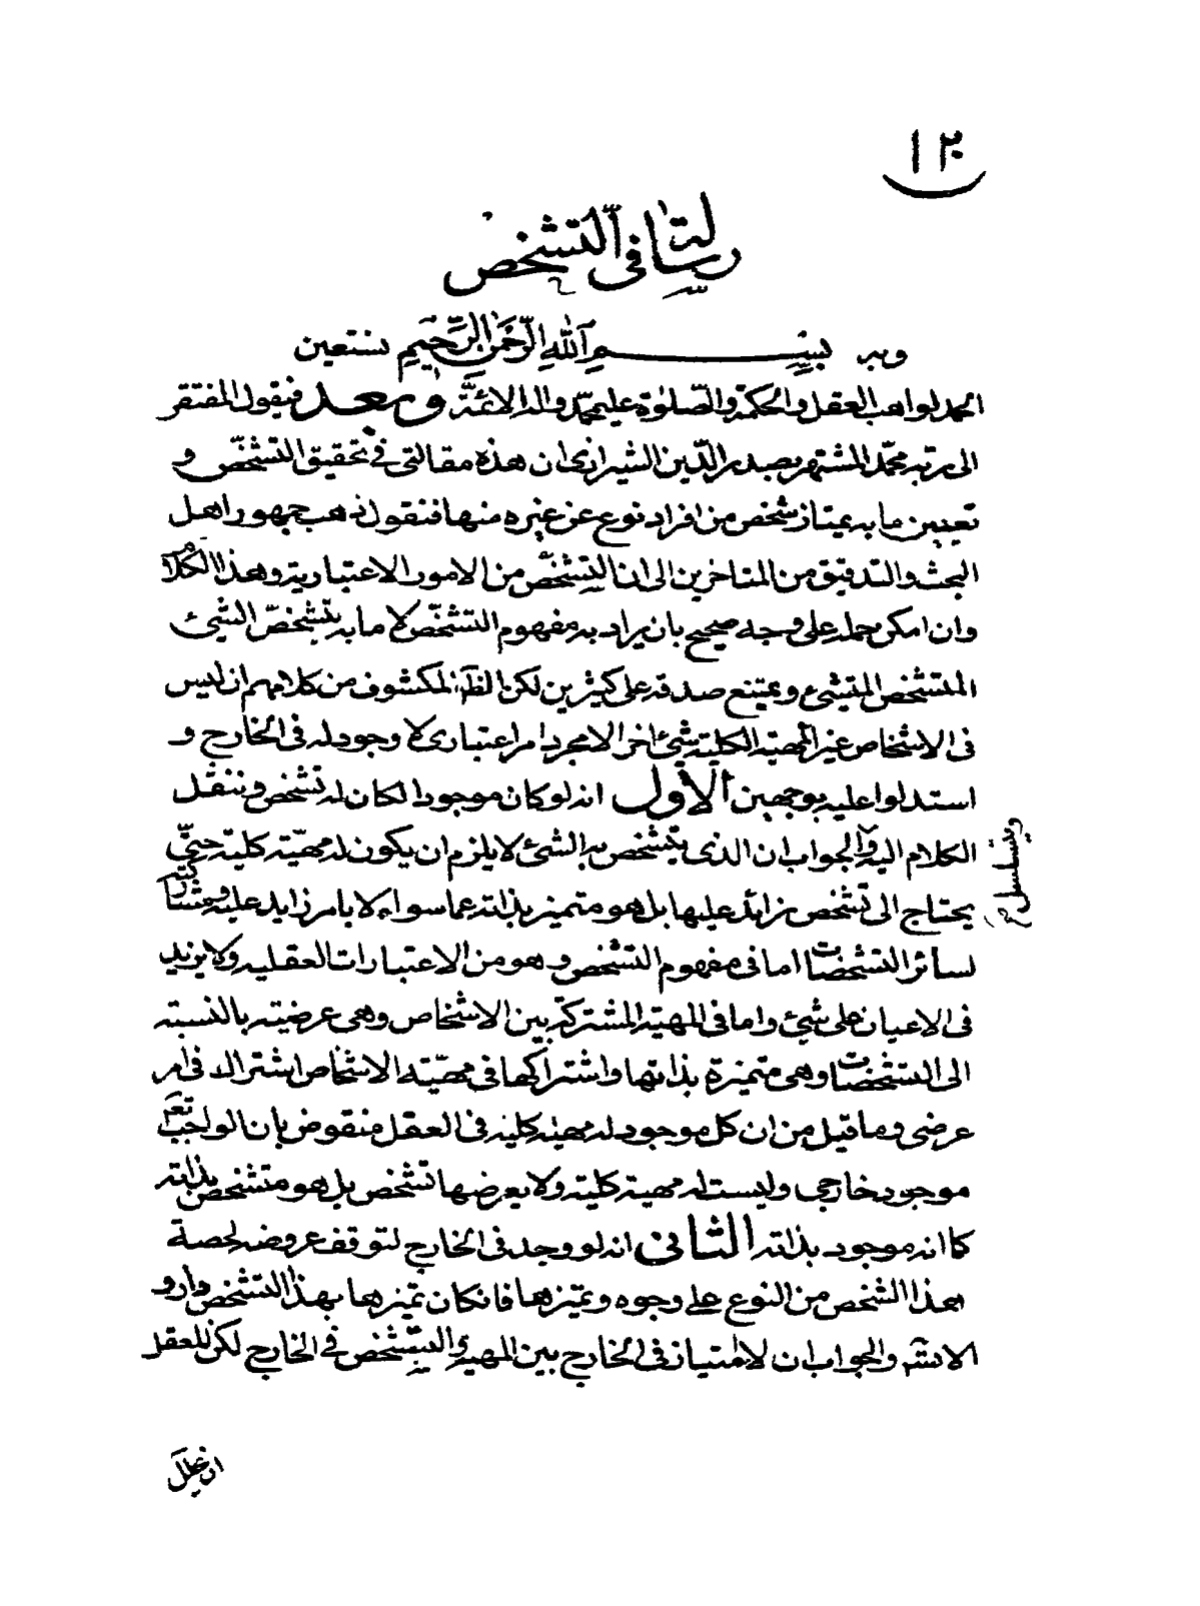 ١٢٠
رسالة فى التشخص
وبه بسم الله الرحمن الرحيم نستعين
الحمد لواهب العقل والحكمة والصلوة على محمد واله الائمة وبعد فيقول المفتقر
الى ربه محمد المشتهر بصدر الدين الشيرازى ان هذه مقالتى فى تحقيق التشخص و
تعيين ما به يمتاز شخص من افراد نوع عن غيره منها فنقول ذهب جمهور اهل
البحث والتدقيق من المتاخرين الى ان التشخص من الامور الاعتبارية وهذا الكلام
وان امكن حمله على وجه صحيح بان يراد به مفهوم التشخص لا ما به يتشخص الشئ
المتشخص المتشئ ويمتنع صدقه على كثيرين لكن الظ المكشوف من كلامهم ان ليس
فى الاشخاص غير المهية الكلية شئ اخر الا مجرد امر اعتبارى لا وجود له فى الخارج و
استدلوا عليه بوجهين الاول انه لو كان موجودا لكان له تشخص وننقل
الكلام اليه والجواب ان الذى يتشخص به الشئ لا يلزم ان يكون له مهيّة كلية حتى
ويتسلسل
يحتاج الى تشخص زائد عليها بل هو متميز بذاته عما سواه لا بامر زايد عليه ومشاركته
لسائر التشخصات اما فى مفهوم التشخص وهو من الاعتبارات العقليه ولا يزيد
فى الاعيان على شئ واما فى المهية المشتركة بين الاشخاص وهى عرضيته بالنسبته
الى التشخصات وهى متميزة بذاتها واشتراكها فى مهيّته الاشخاص اشتراك فى امر
عرضى وما قيل من ان كل موجود له مهية كلية فى العقل منقوض بان الواجب تعم
موجود خارجى وليست له مهية كلية ولا يعرضها تشخص بل هو متشخص بذاته
كما انه موجود بذاته الثانى انه لو وجد فى الخارج لتوقف عروضه لحصة
هذا الشخص من النوع على وجوده وتميزها فان كان تميزها بهذا التشخص دار و
الا يتسلسل والجواب ان لا امتياز فى الخارج بين المهية والتشخص فى الخارج لكن للعقل
ان يحلل